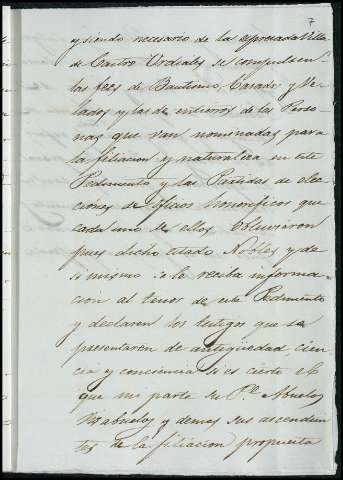 7
y siendo necesario de la espresada Villa
de Castro Urdiales se compulsen
las fees de Bautismo, Casados y Ve-
lados y las de entierros de las Perso-
nas que van nominadas, para
la filiacion y naturaleza en este
Pedimento y las Partidas de elec-
ciones de oficios honorificos que
cada uno de ellos obtuvieron
pues dicho estado Nobles y de
si mismo se le reciba informa-
cion al tenor de este Pedimento
y declaren los testigos que se
presentaren de antigüedad, cien-
cia y conciencia si es cierto
que mi parte su Pe. Abuelos
Bisabuelos y demas sus ascendien-
tes de la filiacion propuesta